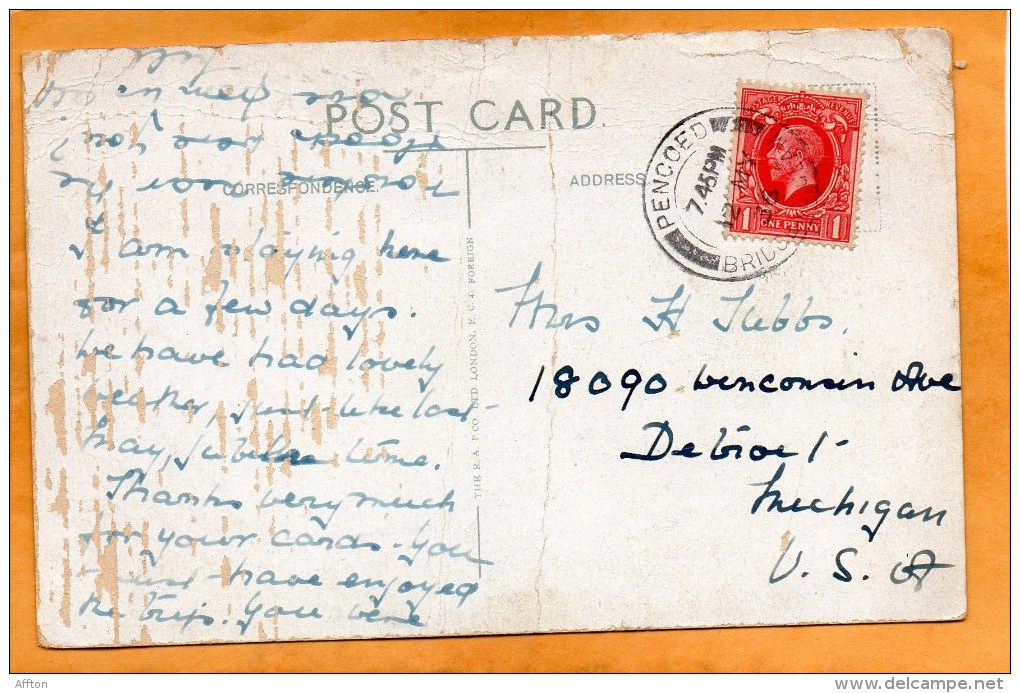 POST CARD.
CORRESPONDENCE.
ADDRESS
I am staying here
for a few days.
We have had lovely
weather, just like last
May, Jubilee time.
Thanks very much
for your cards. You
must have enjoyed
the trip. You were
THE R.A. P.CO. LTD LONDON. E.C.4. FOREIGN
PENCOED
7.45PM
12 MY
BRIDG
POSTAGE REVENUE
1 ONE PENNY 1
Mrs H Tubbs.
18090 Winconsin Ave
Detroit
Michigan
U. S. A
Affton
delcampe.net